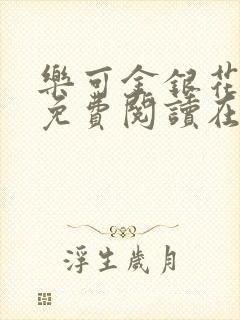 樂可金銀花
免費閱讀在
浮生歲月